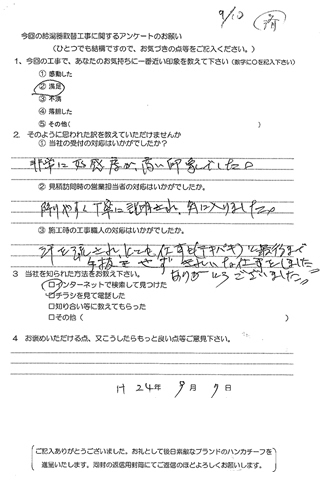 9/10 済
今回の給湯器取替工事に関するアンケートのお願い
(ひとつでも結構ですので、お気づきの点等をご記入ください。)
1、今回の工事で、あなたのお気持ちに一番近い印象を教えて下さい(数字に○を記入下さい)
① 感動した
② 満足
③ 不満
④ 落胆した
⑤ その他( )
2. そのように思われた訳を教えていただけませんか
① 当社の受付の対応はいかがでしたか。
非常に好感度が、高い印象でした。
② 見積訪問時の営業担当者の対応はいかがでしたか。
解りやすく丁寧に説明され、気に入りました。
③ 施工時の工事職人の対応はいかがでしたか。
汗を流され、とても仕事も(テキパキ)と最後まで
手抜きせず きれいな仕事をしました
ありがとうございました。
3 当社を知られた方法をお教え下さい。
□インターネットで検索して見つけた
□チラシを見て電話した
□知り合い等に教えてもらった
□その他( )
4 お褒めいただける点、又こうしたらもっと良い点等ご意見下さい。
H 24年 9月 9日
ご記入ありがとうございました。お礼として後日素敵なブランドのハンカチーフを
進呈いたします。同封の返信用封筒にてご返信のほどよろしくお願いします。